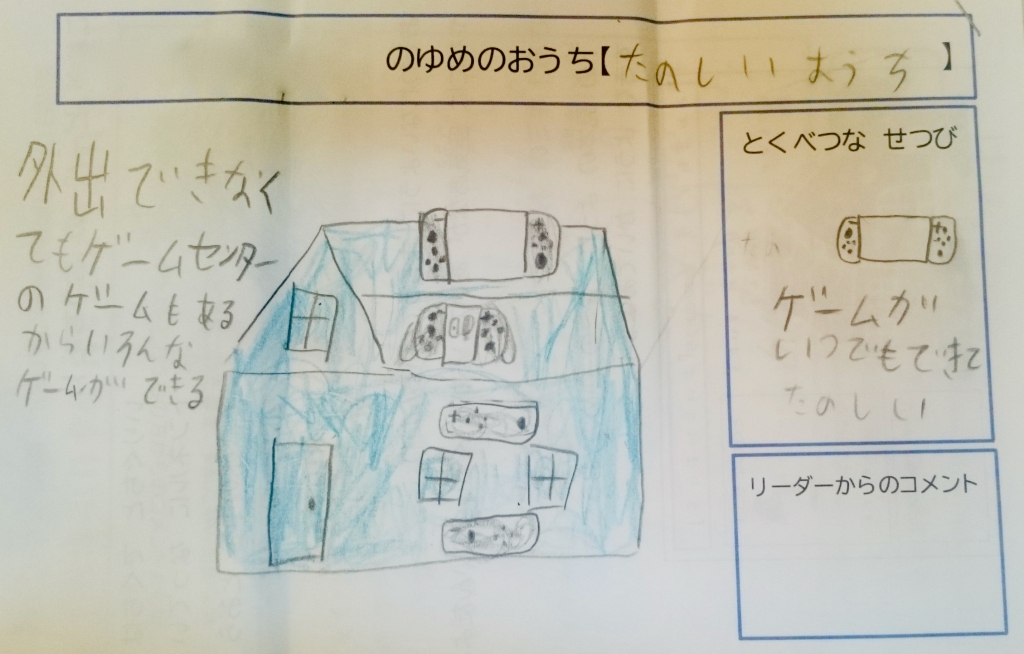 のゆめのおうち【たのしいおうち】
外出できなく
てもゲームセンター
のゲームもある
からいろんな
ゲームができる
とくべつな せつび
ゲームが
いつでもできて
たのしい
リーダーからのコメント